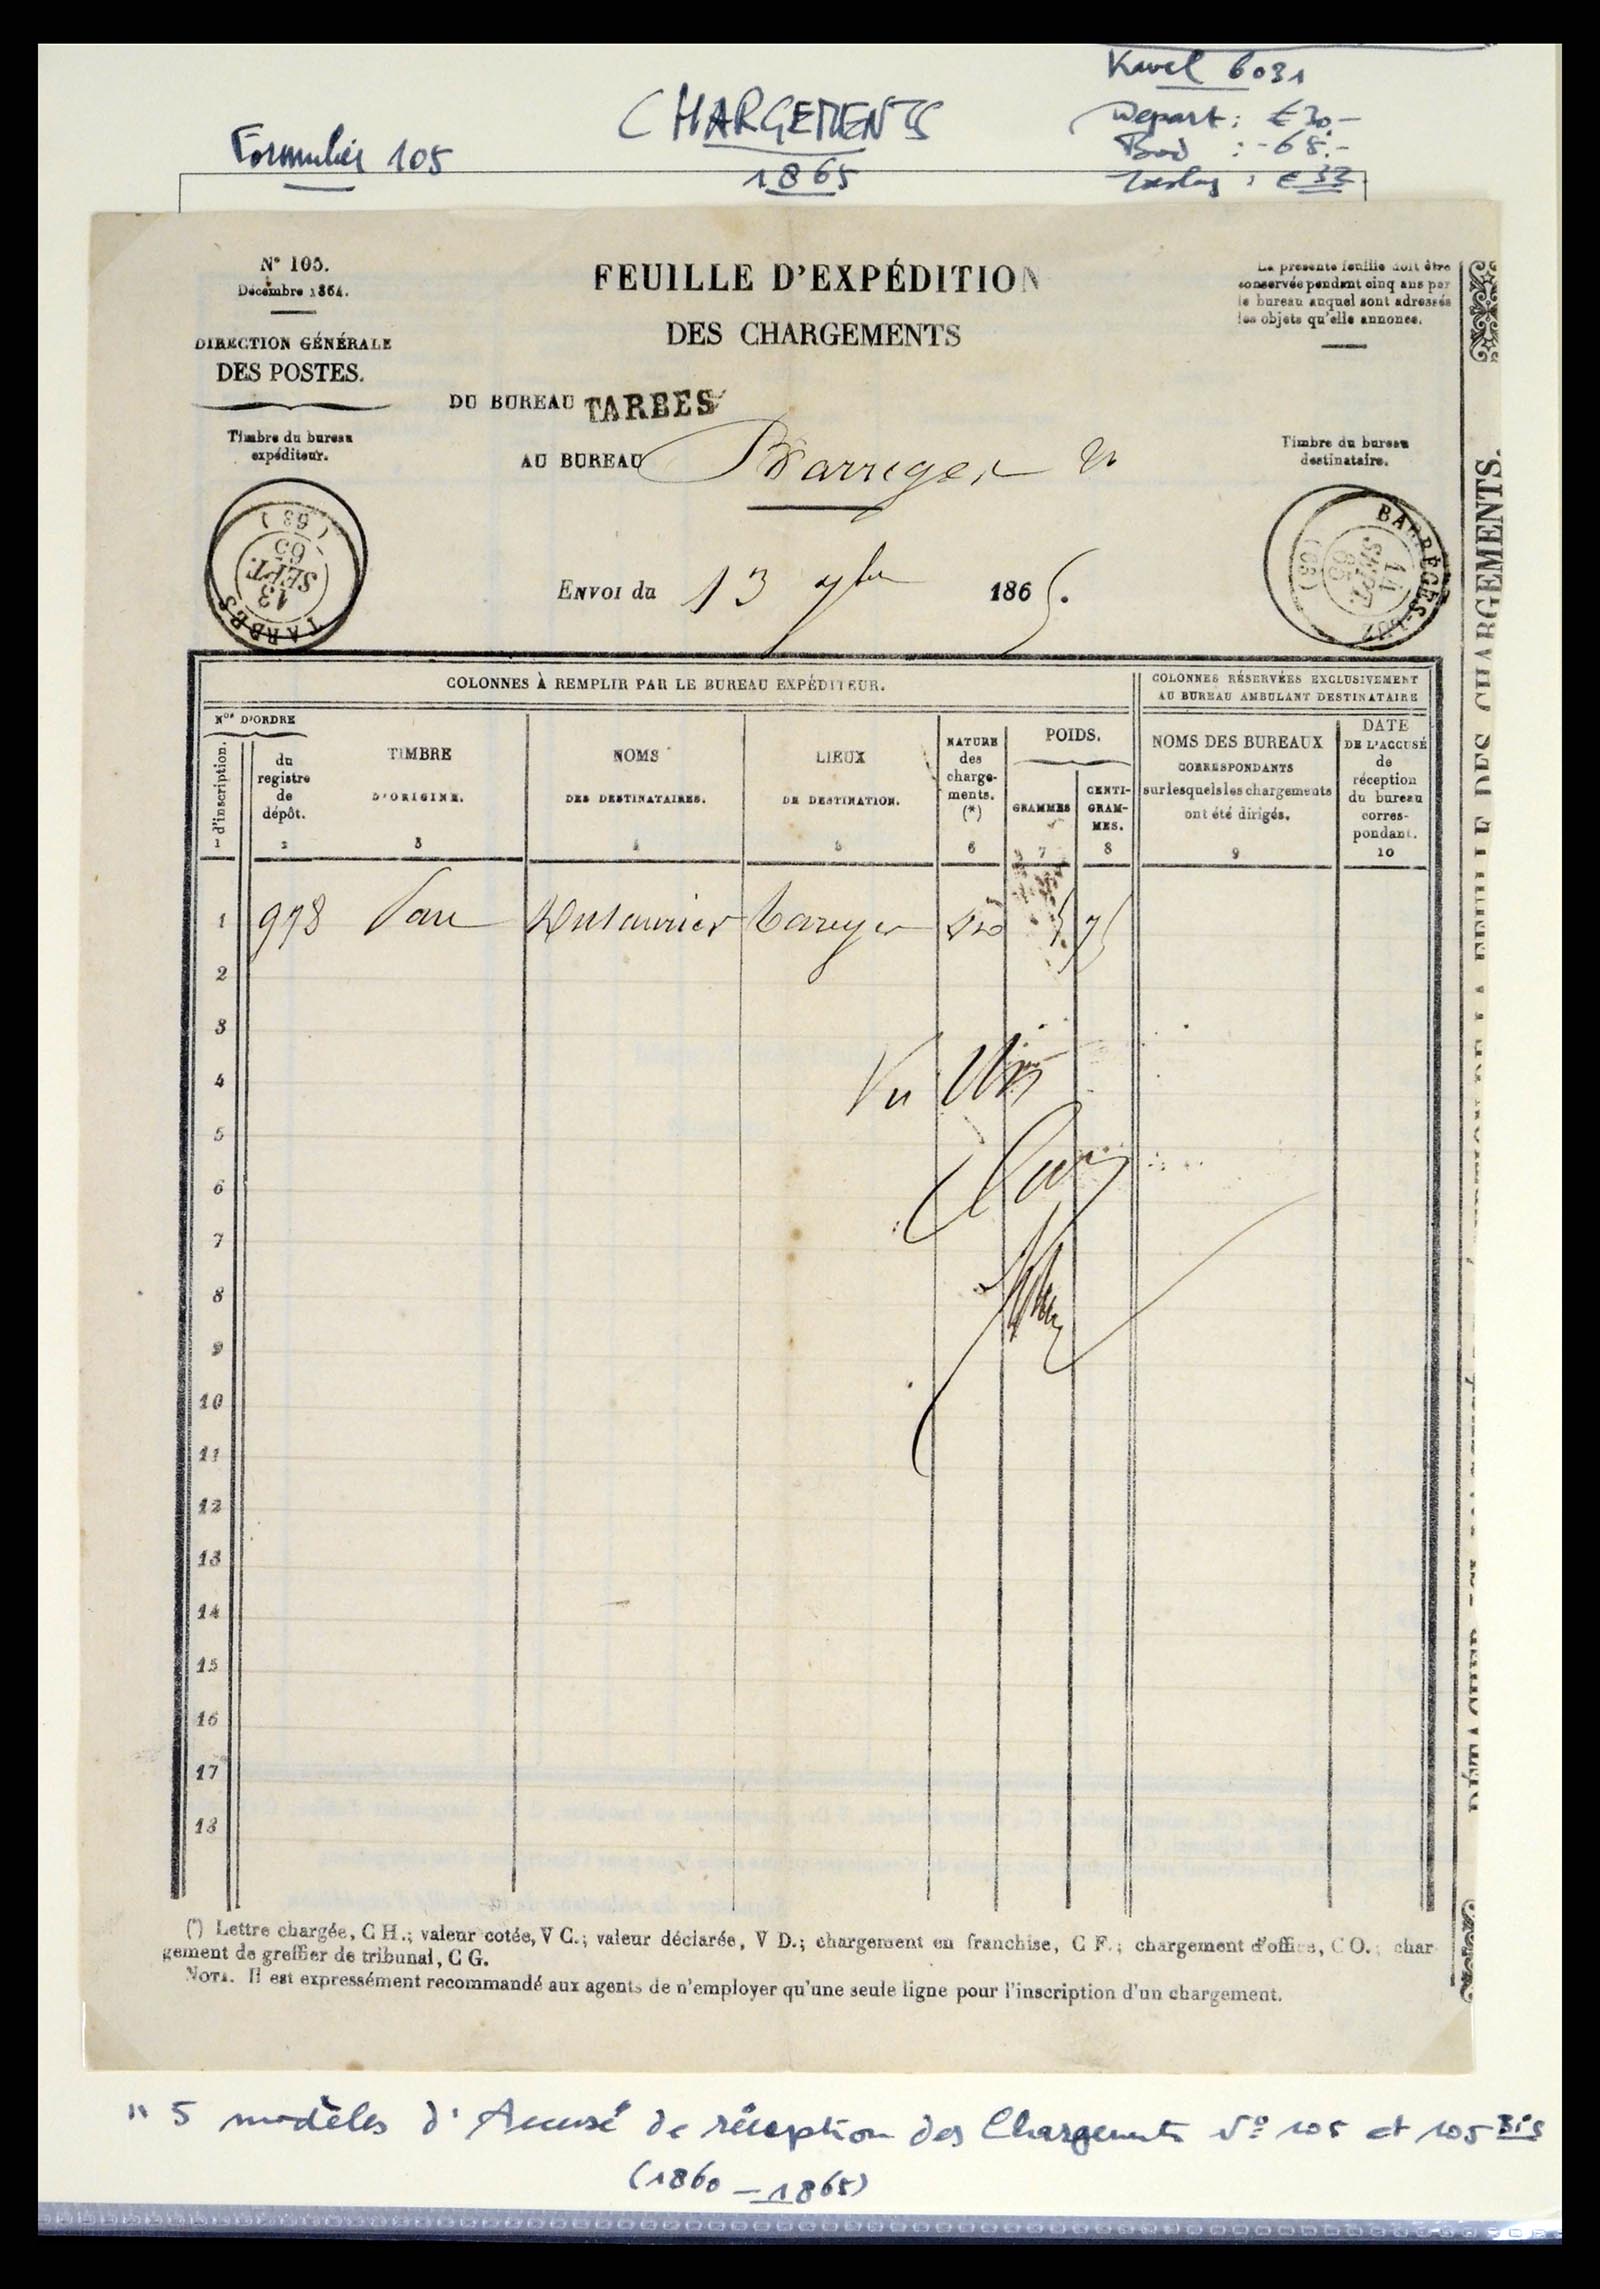 Kavel 6031
CHARGEMENTS
Depart: € 30-
Formulier 105
Bod : -68.-
1865
N° 105.
Décembre 1864.
DIRECTION GÉNÉRALE
DES POSTES.
Timbre du bureau
expéditeur.
FEUILLE D'EXPÉDITION
DES CHARGEMENTS
DU BUREAU TARBES
AU BUREAU Barreges
Envoi du 13 7bre 1865.
La présente feuille doit être
conservée pendant cinq ans par
le bureau auquel sont adressés
les objets qu'elle annonce.
Timbre du bureau
destinataire.
TARBES
13
SEPT.
65
(63)
BARRÈGES-LUZ
14
SEPT.
65
(63)
COLONNES À REMPLIR PAR LE BUREAU EXPÉDITEUR.
COLONNES RÉSERVÉES EXCLUSIVEMENT
AU BUREAU AMBULANT DESTINATAIRE
Nos D'ORDRE
d'inscription.
1
du
registre
de
dépôt.
2
TIMBRE
D'ORIGINE.
3
NOMS
DES DESTINATAIRES.
4
LIEUX
DE DESTINATION.
5
NATURE
des
charge-
ments.
(*)
6
POIDS.
GRAMMES
7
CENTI-
GRAM-
MES.
8
NOMS DES BUREAUX
CORRESPONDANTS
sur lesquels les chargements
ont été dirigés.
9
DATE
DE L'ACCUSÉ
de
réception
du bureau
corres-
pondant.
10
1 978 Pau Barreges 5 75
2
3
4 Vu
5
6
7
8
9
10
11
12
13
14
15
16
17
18
(*) Lettre chargée, C H.; valeur cotée, V C.; valeur déclarée, V D.; chargement en franchise, C F.; chargement d'office, C O.; char-
gement de greffier de tribunal, C G.
NOTA. Il est expressément recommandé aux agents de n'employer qu'une seule ligne pour l'inscription d'un chargement.
DES CHARGEMENTS.
" 5 modèles d'Accusé de réception des Chargements N° 105 et 105 Bis
(1860 - 1865)